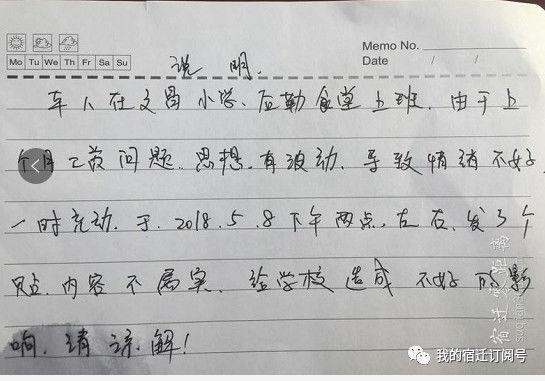 Memo No.
Mo Tu We Th Fr Sa Su
Date / /
说明.
本人在文昌小学、后勤食堂上班. 由于上
个月工资问题. 思想. 有波动. 导致情绪不好
一时充动. 于. 2018.5.8下午两点. 左右. 发了个
贴. 内容不属实. 给学校造成不好的影
响. 请谅解!
我的宿迁订阅号